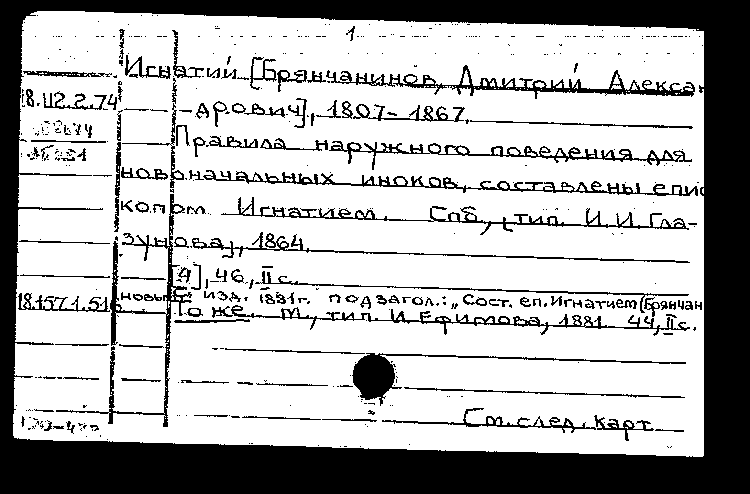 1
Игнатий [Брянчанинов, Дмитрий Алекса-
18.112.2.74
дрович], 1807-1867.
Правила наружного поведения для
новоначальных иноков, составлены епис
копом Игнатием. Спб., [тип. И.И. Гла-
зунова], 1864.
[4], 46, II с.
новый изд. 1881г. подзагол.: „Сост. еп. Игнатием (Брянчан
18.157.1.516 То же. М., тип. И. Ефимова, 1881. 44, II с.
См. след. карт.